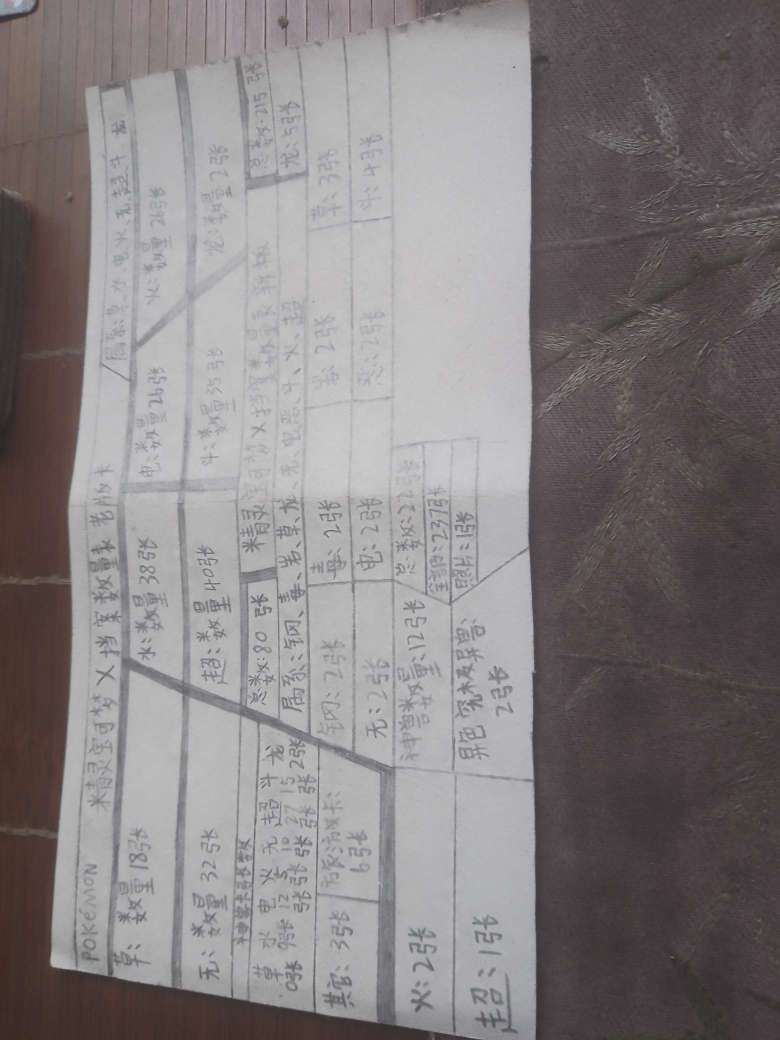 POKéMON 精灵宝可梦X挡案数量表 老版卡
属系:草、水、电、火、无、超、斗、龙
草:数量18张 水:数量38张 电:数量26张 火:数量26张
无:数量32张 超:数量40张 斗:数量35张 龙:数量2张
神兽卡张数
总数:80张 精灵宝可梦X挡案数量表 总数:215张
草 水 电 火 无 超 斗 龙
0张 9张 12张 5张 10张 27张 15张 2张
属系:钢、毒、岩、草、龙、无、电、恶、斗、火、超 龙:5张
其它:3张 6张
钢:2张 毒:2张 岩:2张 草:3张
无:2张 电:2张 恶:2张 斗:4张
火:2张 神兽数量:12张 总数:22张
全部:237张
超:1张 异色究极异兽:2张 照片:1张